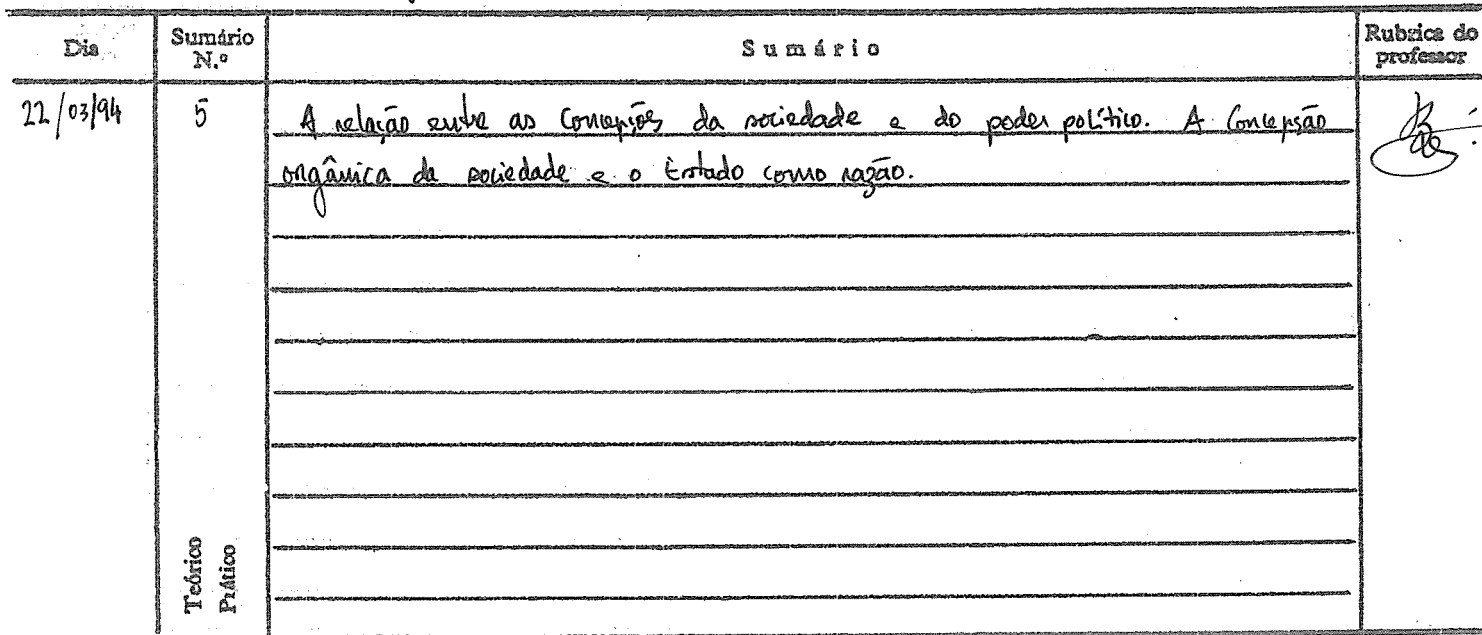 Dia
Sumário N.º
Sumário
Rubrica do professor
22/03/94
5
A relação entre as Concepções da sociedade e do poder político. A Concepsão
orgânica da sociedade e o Estado como razão.
Teórico
Prático